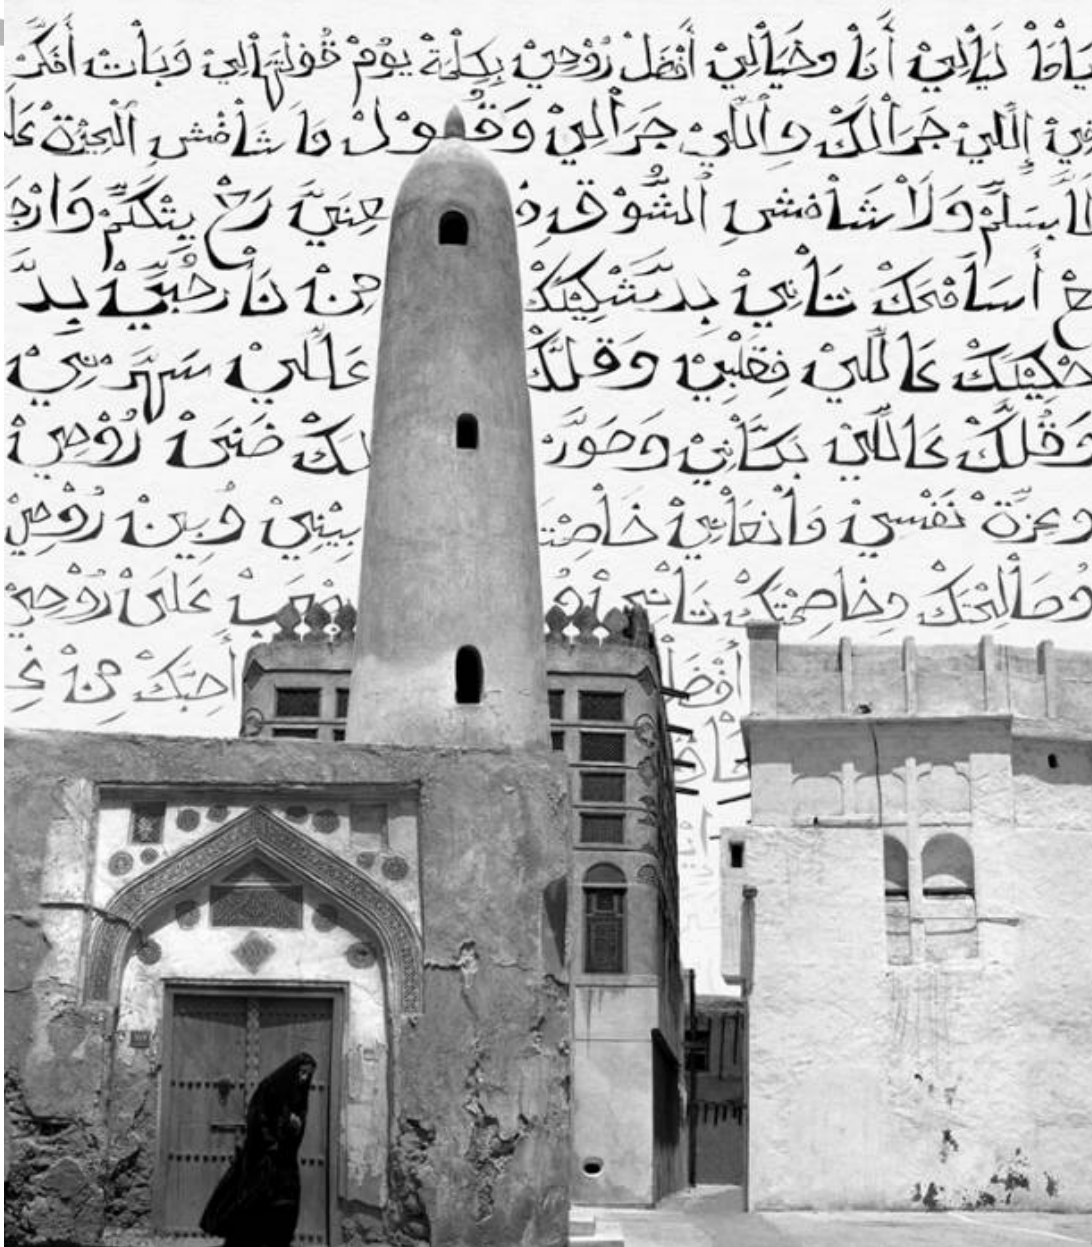 يَامَا لَيَالِيْ أَنَا وخَيَالِيْ أَفْضَلْ رُوْحِيْ بِكِلْمَةْ يوُمْ قُولْتْهَالِيْ وَبَاتْ أَفَكَّرْ
إِللِّيْ جَرَالَكْ وِاللِّيْ جَرَالِيْ وَقُوْلْ مَا شَافْشِ الْحِيْرَةْ عَلَ
لَمَّا بسَلِّمْ وَلَا شَافْشِ الشُّوْق فِـ عِنَيَّ رَحْ يِتْكَلِّمْ وَارْجَ
ـعْ أَسَامْحَكْ تَانِيْ بِدَّشْكِيْلَكْ مِنْ نَارْ حُبِّيْ بِدَّ
حْكِيْلَكْ عَاللِّيْ فِقَلْبِيْ وَقَلَّكْ عَاللِّيْ سَهَّرْنِيْ
وَقُلَّكْ عَاللِّيْ بَكَّانِيْ وَصَوَّرْ لَكْ ضَنَىْ رُوْحِيْ
وعِزَّةْ نَفْسِيْ مَانْعَانِيْ خَاصِمْتَـ بِيْنِيْ وُبِينْ رُوْحِيْ
وُصَالَحْتَكْ وخَاصِمْتَكْ تَانِيْ عَلَىْ رُوْحِيْ
أَفْضَلْ أَحِبَّكْ مِنْ غِـ